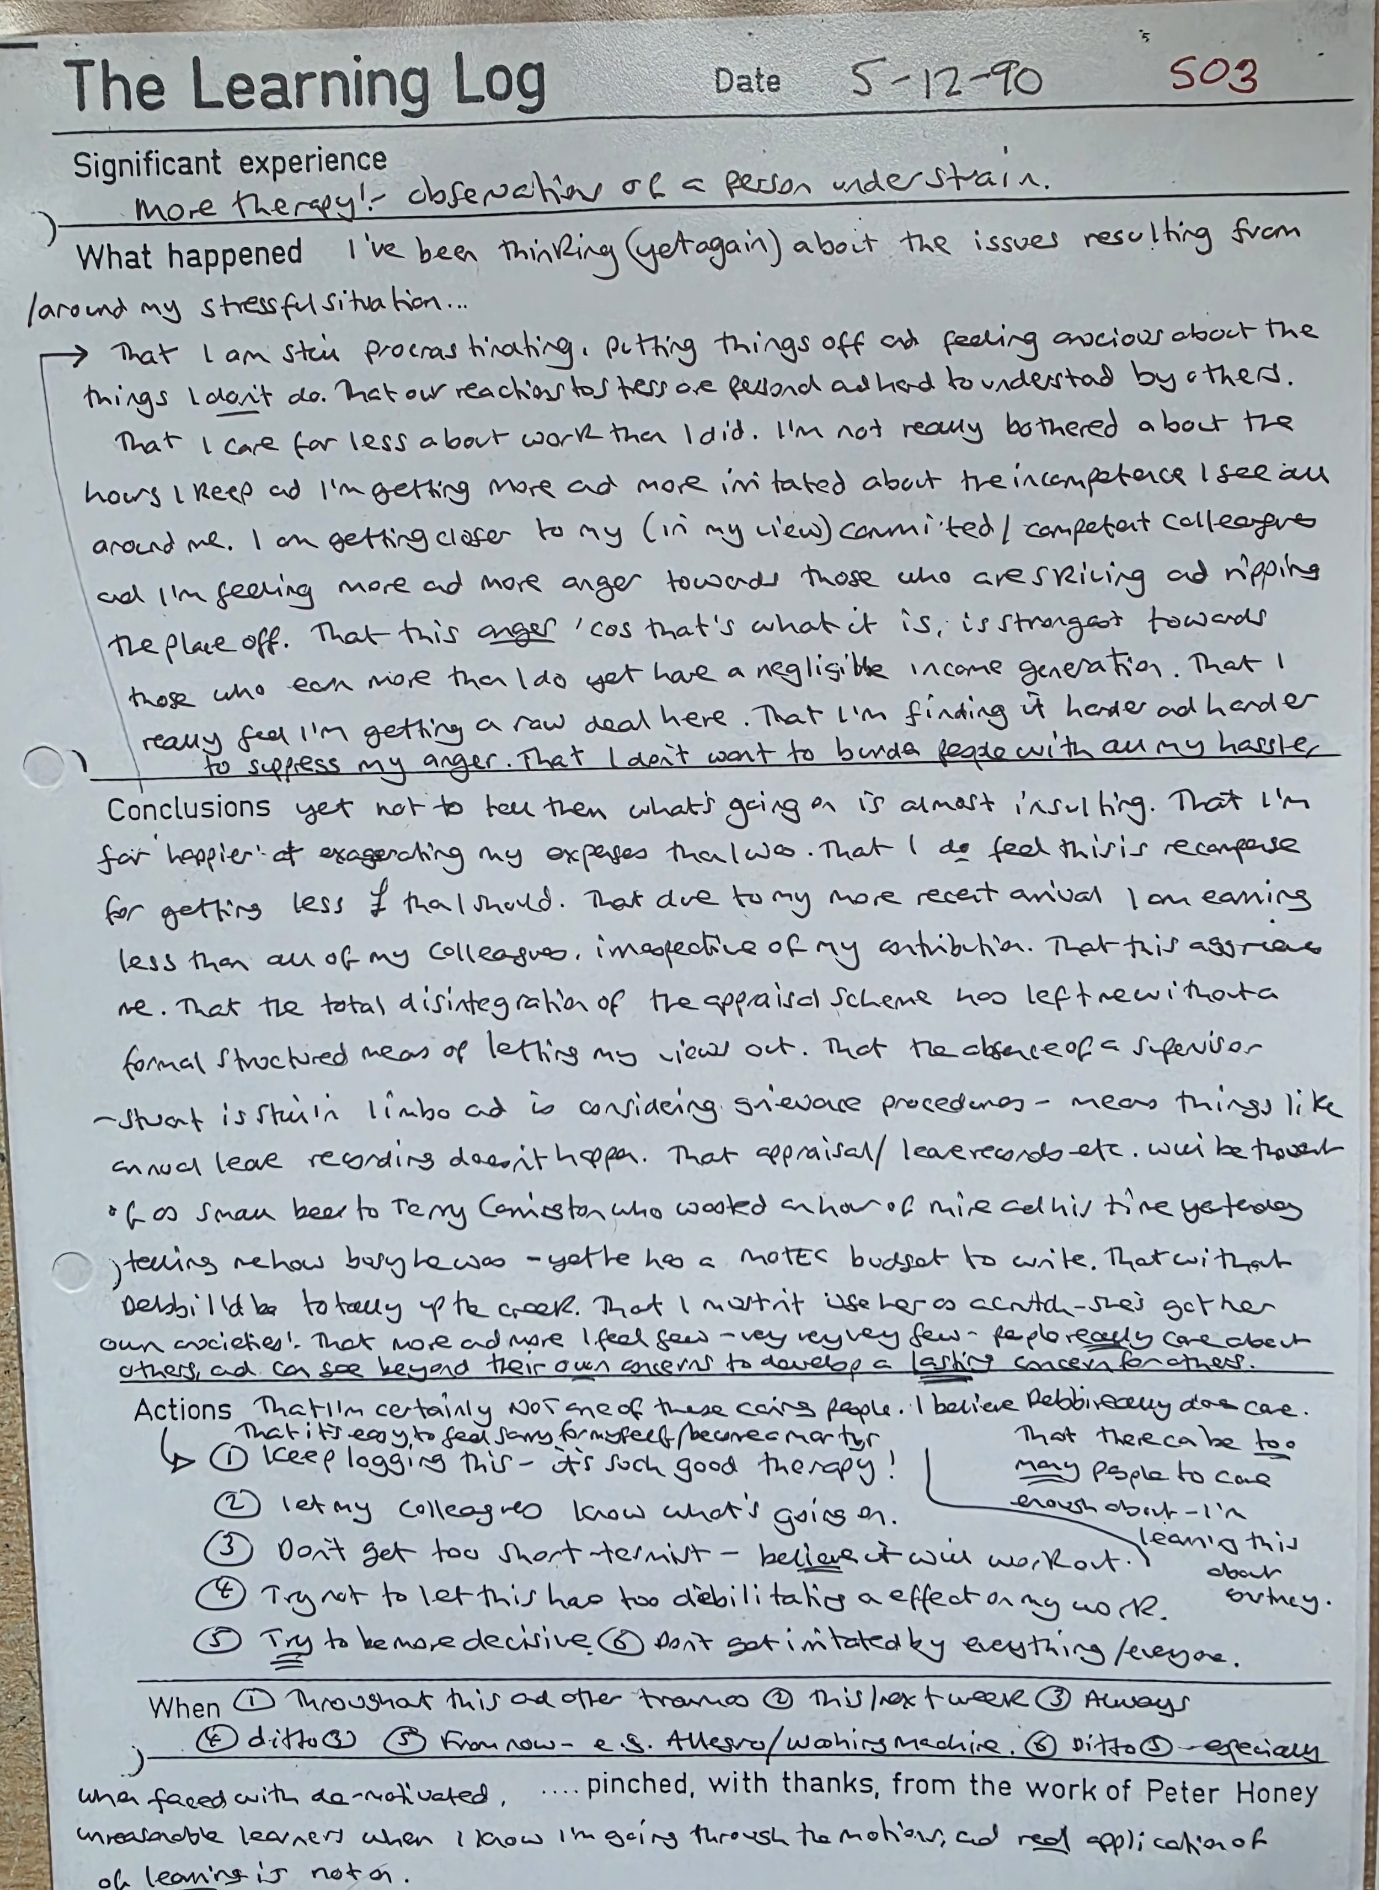 The Learning Log Date 5-12-90 503
Significant experience
More therapy! - observations of a person under strain.
What happened I've been thinking (yet again) about the issues resulting from
/around my stressful situation...
→ That I am still procrastinating, putting things off and feeling anxious about the
things I don't do. That our reactions to stress are personal and hard to understand by others.
That I care far less about work than I did. I'm not really bothered about the
hours I keep and I'm getting more and more irritated about the incompetence I see all
around me. I am getting closer to my (in my view) committed/competent colleagues
and I'm feeling more and more anger towards those who are skiving and ripping
the place off. That this anger 'cos that's what it is, is strongest towards
those who earn more than I do yet have a negligible income generation. That I
really feel I'm getting a raw deal here. That I'm finding it harder and harder
to suppress my anger. That I don't want to burden people with all my hassles,
Conclusions yet not to tell them what's going on is almost insulting. That I'm
far 'happier' at exagerating my expenses than I was. That I do feel this is recompense
for getting less £ than I should. That due to my more recent arrival I am earning
less than all of my colleagues, irrespective of my contribution. That this aggrieves
me. That the total disintegration of the appraisal scheme has left me without a
formal structured means of letting my views out. That the absence of a supervisor
- Stuart is still in limbo and is considering grievance procedures - means things like
annual leave recording doesn't happen. That appraisal/leave records etc. will be thought
of as small beer to Terry who wasted an hour of mine and his time yesterday
telling me how busy he was - yet he has a MOTEC budget to write. That without
Debbi I'd be totally up the creek. That I mustn't use her as a crutch - she's got her
own anxieties! That more and more I feel few - very very very few - people really care about
others, and can see beyond their own concerns to develop a lasting concern for others.
Actions That I'm certainly NOT one of these caring people. I believe Debbi really does care.
That it's easy to feel sorry for myself/become a martyr
That there can be too
many people to care
enough about - I'm
learning this
about
① Keep logging this - it's such good therapy!
② Let my colleagues know what's going on.
③ Don't get too short-termist - believe it will work out.
④ Try not to let this has too debilitating a effect on my work.
⑤ Try to be more decisive. ⑥ Don't get irritated by everything/everyone.
When ① Throughout this and other traumas ② This/next week ③ Always
④ ditto ③ ⑤ From now - e.g. Allegro/washing machine. ⑥ Ditto ⑤ - especially
when faced with de-motivated, .... pinched, with thanks, from the work of Peter Honey
unreasonable learners when I know I'm going through the motions, and real application of
of learning is not on.